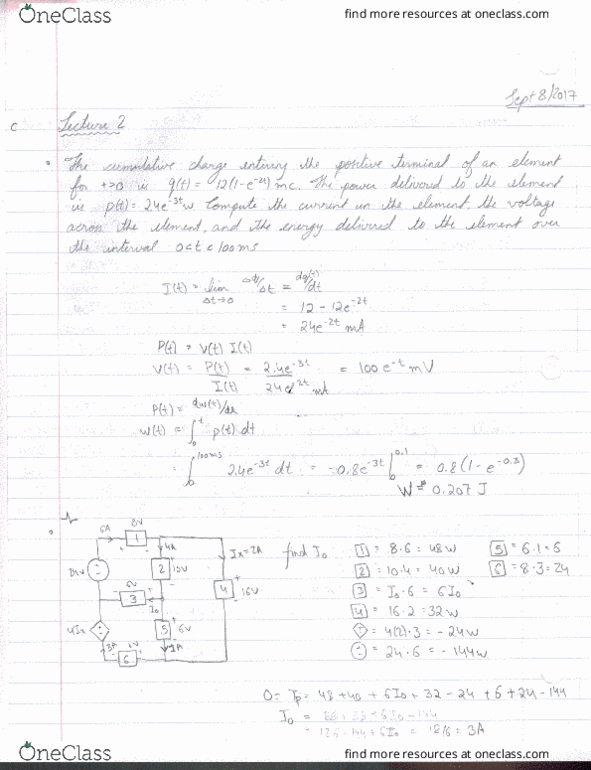 OneClass
find more resources at oneclass.com
Sept 8/2017
C Lecture 2
The cumulative charge entering the positive terminal of an element
for t>0 is q(t) = 12(1-e⁻²ᵗ) mc. The power delivered to the element
is p(t) = 2.4e⁻³ᵗ w Compute the current in the element, the voltage
across the element, and the energy delivered to the element over
the interval 0<t<100ms
I(t) = lim Δq/Δt = dq(t)/dt
Δt→0
= 12 - 12e⁻²ᵗ
= 24e⁻²ᵗ mA
P(t) = V(t) I(t)
V(t) = P(t)/I(t) = 2.4e⁻³ᵗ/24e⁻²ᵗ mA = 100e⁻ᵗ mV
P(t) = dw(t)/dt
w(t) = ∫₀ᵗ p(t) dt
= ∫₀¹⁰⁰ᵐˢ 2.4e⁻³ᵗ dt = -0.8e⁻³ᵗ |₀⁰·¹ = 0.8(1-e⁻⁰·³)
W = 0.207 J
6A 8V
1
4A
Ix=2A
find I₀
24V
2
10V
4
16V
6V
3
I₀
4Ix
5
6V
1A
3A
6
1 = 8·6 = 48w
2 = 10·4 = 40w
3 = I₀·6 = 6I₀
4 = 16·2 = 32w
= 4(2)·3 = -24w
= 24·6 = -144w
5 = 6·1 = 6
6 = 8·3 = 24
0 = Tp = 48 + 40 + 6I₀ + 32 - 24 + 6 + 24 - 144
I₀ =
= 126 - 144 + 6I₀ = 18/6 = 3A
OneClass
find more resources at oneclass.com